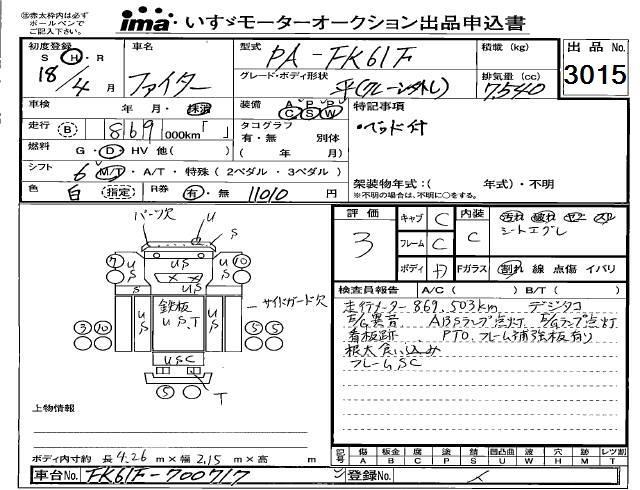 ㊟赤太枠内は必ず
ボールペンで
ご記入下さい。
ima いすゞモーターオークション出品申込書
初度登録
S H・R
18/4 月
車名
ファイター
型式
PA-FK61F
積載 (kg)
出品No.
3015
グレード・ボディ形状
平(クレーン外し)
排気量(cc)
7,540
車検
年 月・抹消
装備
A P P
C S W
特記事項
・ベッド付
走行 B 869 000km「 」
タコグラフ
有・無 別体
( 年 月)
燃料 G・D・HV 他( )
シフト 6 M/T・A/T・特殊(2ペダル・3ペダル)
架装物年式:( 年式)・不明
※不明の場合は、不明に○をする。
色 白 (指定) R券 有・無 11010 円
評価
3
キャブ C
フレーム C
ボディ カ
内装
C
汚れ 破れ ゼニ スレ
シートエグレ
Fガラス 割れ 線 点傷 イバリ
検査員報告 A/C( ) B/T( )
走行メーター869,503km デジタコ
E/G異音 ABSランプ点灯 E/Gランプ点灯
看板跡 PTO、フレーム補強板有り
根太食い込み
フレームSC
パーツ欠
U
S
7
10
U S
U
S
U
S
鉄板
US、T
U
S
サイドガード欠
3
10
5
5
USC
5
T
上物情報
ボディ内寸約 長 4.26 m×幅 2.15 m×高 m
記号
傷 板金 腐 塗 錆 凹凸曲 波 穴 跡 レツ割
A B C P S U W H M T
車台No. FK61F-700717
登録No.